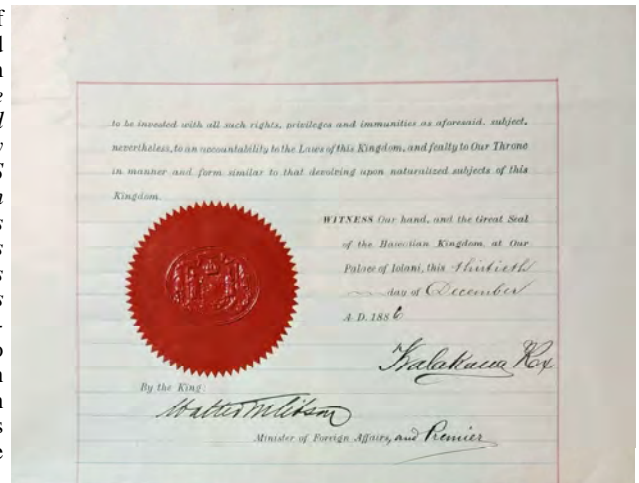 to be invested with all such rights, privileges and immunities as aforesaid, subject,
nevertheless, to an accountability to the Laws of this Kingdom, and fealty to Our Throne
in manner and form similar to that devolving upon naturalized subjects of this
Kingdom.
WITNESS Our hand, and the Great Seal
of the Hawaiian Kingdom, at Our
Palace of Iolani, this thirtieth
day of December
A. D. 1886
Kalakaua Rex
By the King:
Walter M Gibson
Minister of Foreign Affairs, and Premier